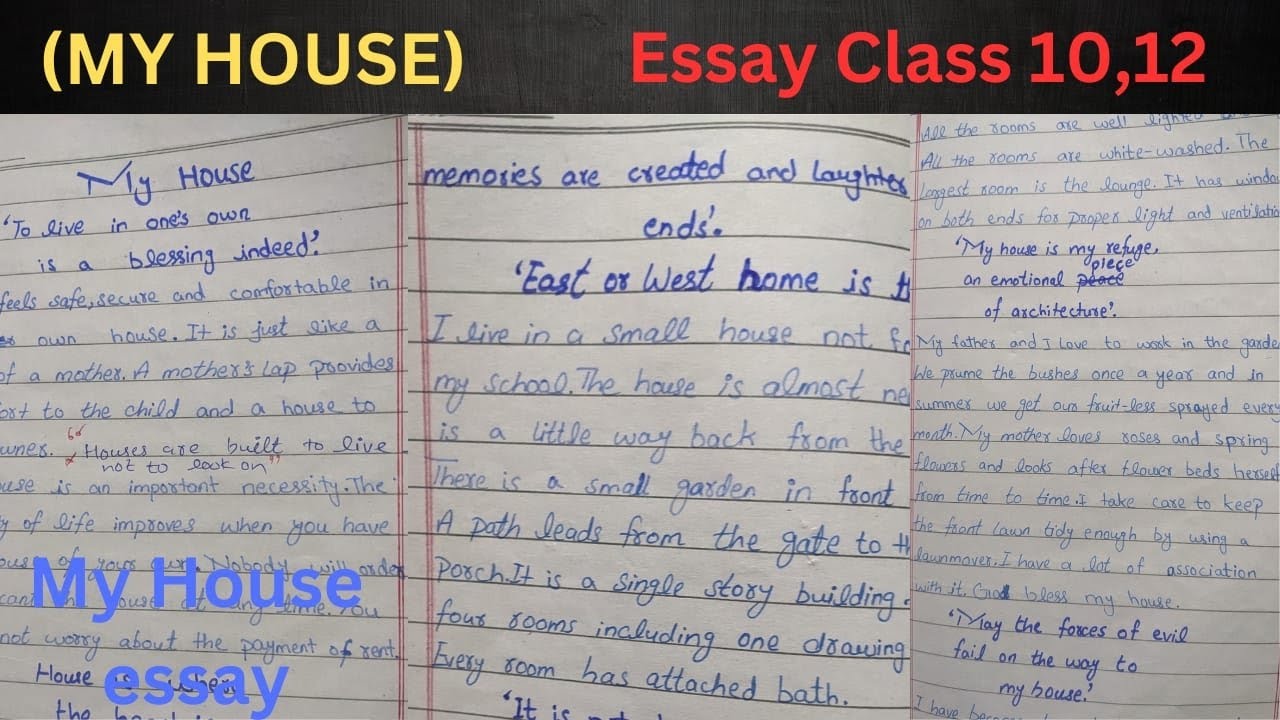 (MY HOUSE)
Essay Class 10,12
My House
'To live in one's own
is a blessing indeed'.
feels safe, secure and comfortable in
own house. It is just like a
of a mother. A mother's Lap provides
to the child and a house to
"Houses are built to live
not to look on"
is an important necessity. The
of life improves when you have
of your own. Nobody will order
at any time. You
not worry about the payment of rent.
House is where
the
My House
essay
memories are created and laughter
ends'.
'East or West home is
I live in a small house not
my school. The house is almost
is a little way back from the
There is a small garden in front
A path leads from the gate to
Porch. It is a single story building.
four rooms including one drawing
Every room has attached bath.
'It is
All the rooms are well lighted
All the rooms are white-washed. The
largest room is the lounge. It has
on both ends for proper light and
'My house is my refuge,
an emotional peace piece
of architecture'.
My father and I love to work in the
We prume the bushes once a year and in
summer we get our fruit-less sprayed every
month. My mother loves roses and spring
flowers and looks after flower beds herself
from time to time. I take care to keep
the front lawn tidy enough by using a
lawnmover. I have a lot of association
with it. God bless my house.
'May the forces of evil
fail on the way to
my house'.
I have